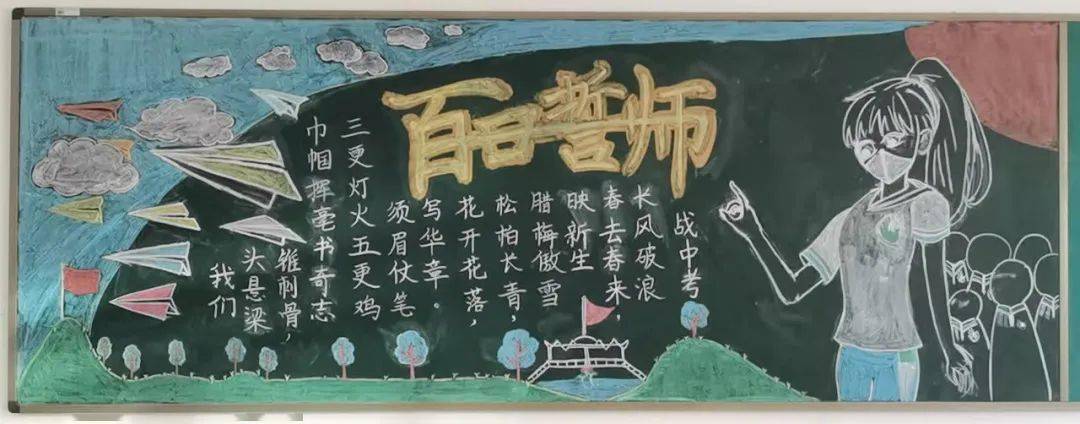 百日誓师
我们
头悬梁
锥刺骨，
巾帼挥毫书奇志
三更灯火五更鸡
须眉仗笔
写华章。
花开花落，
松柏长青，
腊梅傲雪
映新生
春去春来，
长风破浪
战中考